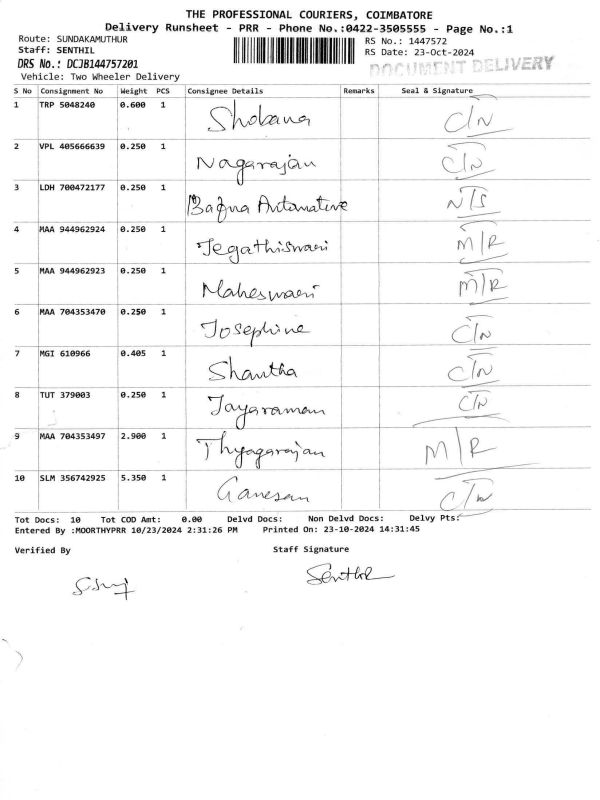 THE PROFESSIONAL COURIERS, COIMBATORE
Delivery Runsheet - PRR - Phone No.:0422-3505555 - Page No.:1
Route: SUNDAKAMUTHUR RS No.: 1447572
Staff: SENTHIL RS Date: 23-Oct-2024
DRS No.: DCJB144757201 DOCUMENT DELIVERY
Vehicle: Two Wheeler Delivery
S No Consignment No Weight PCS Consignee Details Remarks Seal & Signature
1 TRP 5048240 0.600 1 Shobana C/N
2 VPL 405666639 0.250 1 Nagarajan C/N
3 LDH 700472177 0.250 1 Bafna Automative N/S
4 MAA 944962924 0.250 1 Jegathiswari M/R
5 MAA 944962923 0.250 1 Maheswari M/R
6 MAA 704353470 0.250 1 Josephine C/N
7 MGI 610966 0.405 1 Shantha C/N
8 TUT 379003 0.250 1 Jayaraman C/N
9 MAA 704353497 2.900 1 Thyagarajan M/R
10 SLM 356742925 5.350 1 Ganesan C/N
Tot Docs: 10 Tot COD Amt: 0.00 Delvd Docs: Non Delvd Docs: Delvy Pts:
Entered By :MOORTHYPRR 10/23/2024 2:31:26 PM Printed On: 23-10-2024 14:31:45
Verified By Staff Signature
Senthil